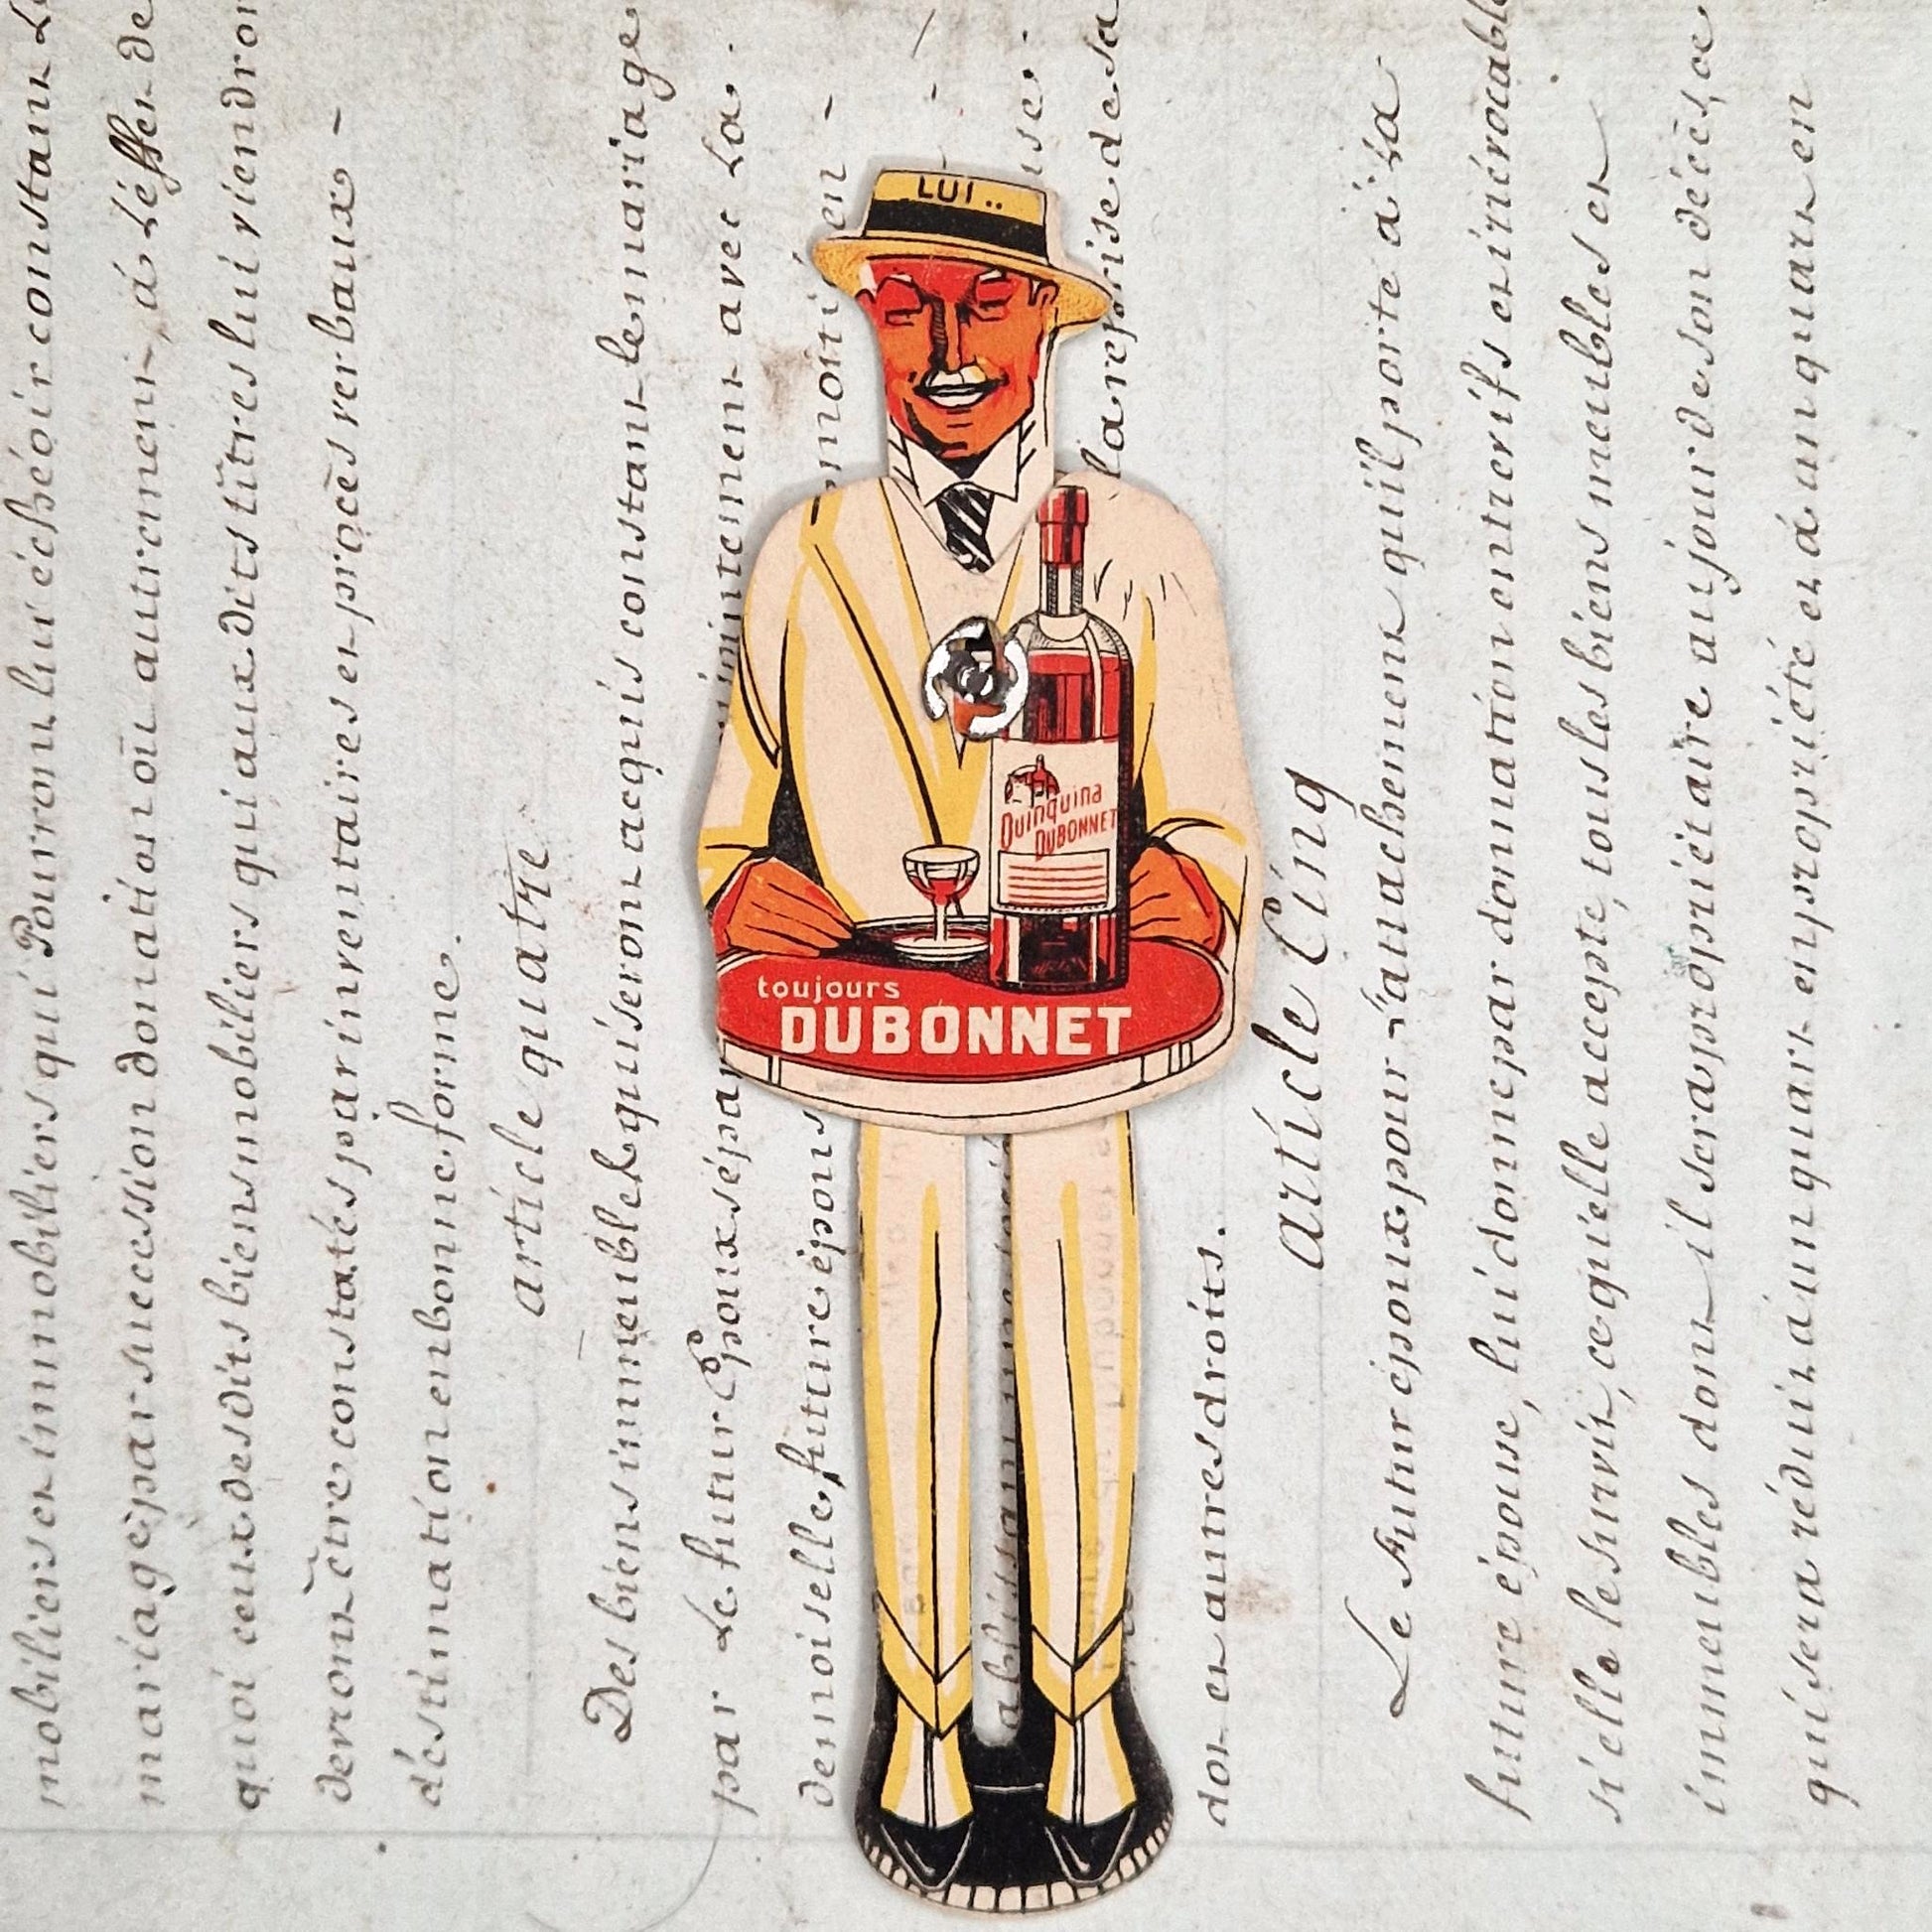 LUI..
Quinquina
DUBONNET
toujours
DUBONNET
mobiliers et immobiliers qui Pourront lui échéoir constant Le
mariage par succession donation ou autrement, à L'effet de
quoi ceux desdits biens mobiliers qui aux dits titres lui viendron
devront être constatés par inventaires et procès verbaux -
déstination en bonne forme.
article quatre
Des biens immeubles qui seront acquis constant le mariage
par Le futur Epoux séparément avec La.
demoiselle future épouse en -
la reprise de sa
dot et autres droits.
article Cinq
Le futur époux pour L'attachement qu'il porte à la
future épouse, lui donne par donnation entre vifs et irrévocable
si elle le survit, ce qu'elle accepte, tous les biens meubles et
immeubles dont il sera propriétaire au jour de son décès, ce
qui sera réduit à un quart en propriété et à un quart en